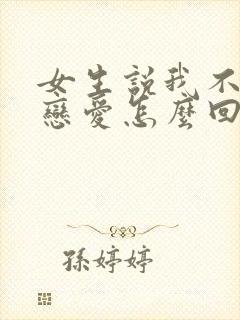 女生説我不
戀愛怎麼回
孫婷婷